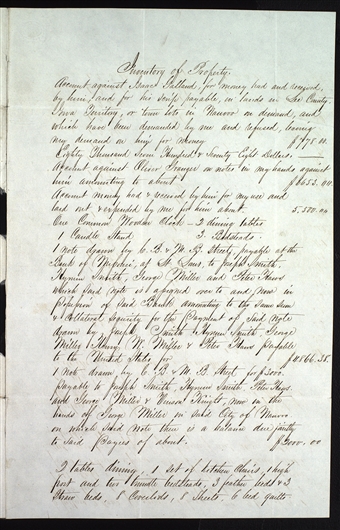 Inventory of Property.
Account against Isaac Galland, for money had and received,
by him, and for his Scrip payable, in lands in Lee County,
Iowa Territory, or town lots in Nauvoo on demand, and
which have been demanded by me and refused, leaving
my demand on him for money $
Eighty Thousand Seven Hundred & Twenty Eight Dollars.
Account against Oliver Granger on notes in my hands against
him ammounting to about $
Account money had & received by him for my use and
laid out & expended by me for him about. 5,500.00
One Common Wooden Clock – 2 dining tables
1 Candle Stand 3 Bedsteads.
1 note drawn by C. B. & M. B. Street, payable at the
Bank of at St. Louis, to Joseph Smith
Hyrum Smith, George Miller and Peter Haws
which said note is assigned over to and now in
possession of said Bank ammounting to the same sum
& Collateral Security for the Payment of said note
drawn by Joseph Smith Hyrum Smith George
Miller Henry W. Miller & Peter Haws payable
to the United States for $4866.38
1 note drawn by C. B & M. B Street for $3000.
payable to Joseph Smith, Hyrum Smith Peter Haws
and George Miller & Vinson Knight, now in the
hands of George Miller in said City of Nauvoo
on which said note there is a balance due jointly
to said Payees of about. $3000.00
2 tables dining, 1 set of kitchen Chairs, 1 high
post and two trundle bedsteads, 3 feather beds & 3
Straw beds, 8 Coverlids, 8 Sheets, 6 bed quilts